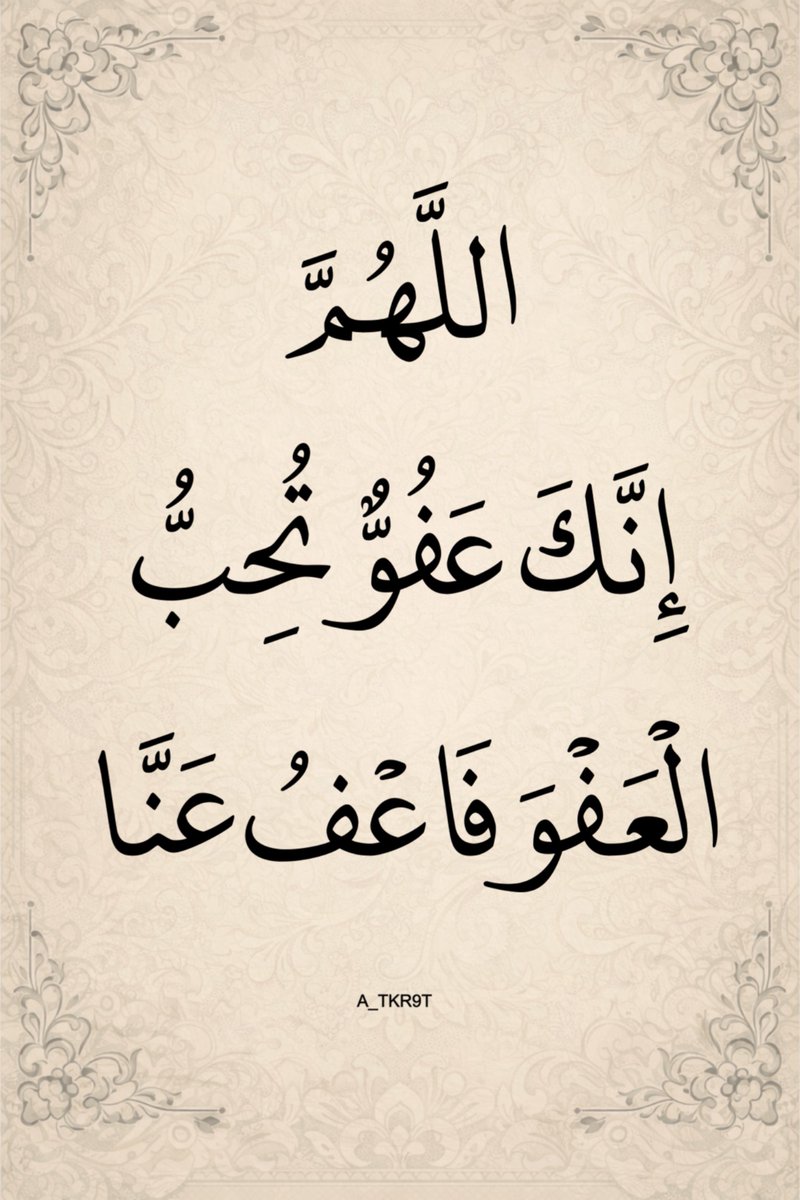 اللَّهُمَّ
إِنَّكَ عَفُوٌّ تُحِبُّ
الْعَفْوَ فَاعْفُ عَنَّا
A_TKR9T